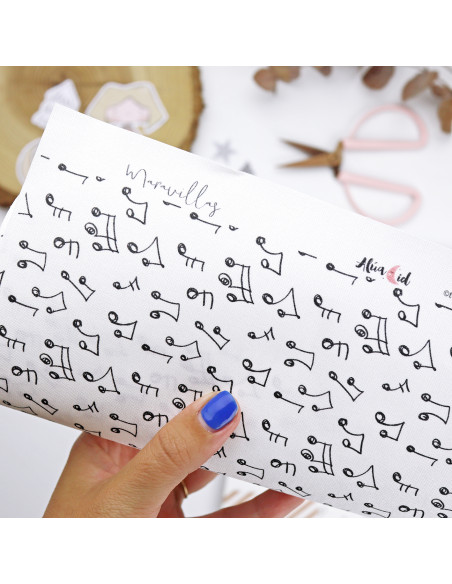 Maravillas
Alúa Cid